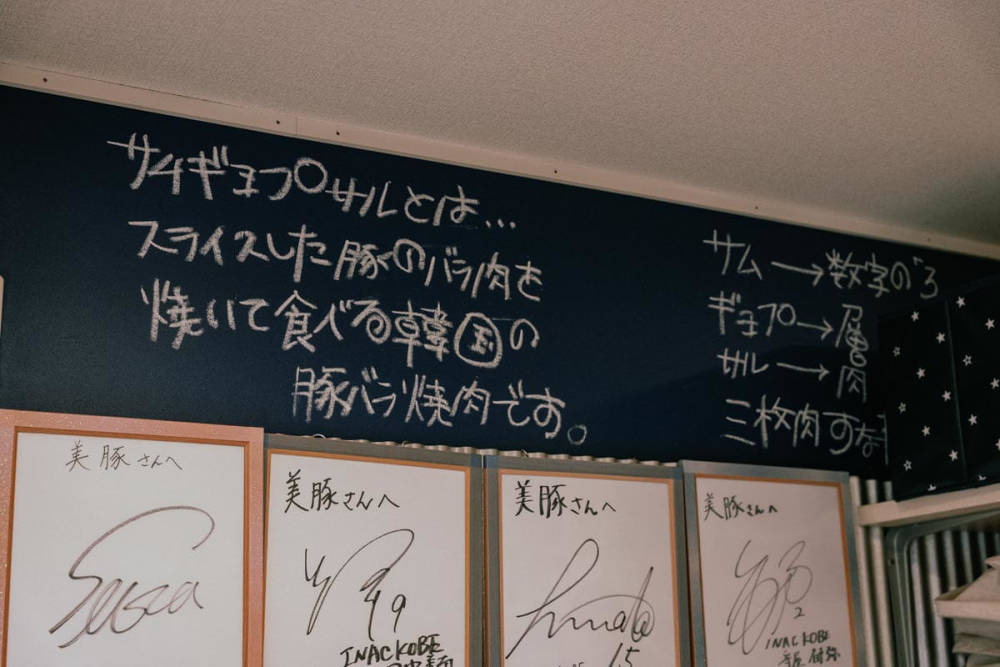 サムギョプサルとは...
スライスした豚のバラ肉を
焼いて食べる韓国の
豚バラ焼肉です。
サム→数字の「3
ギョプ→層
サル→肉
三枚肉すな
美豚さんへ
美豚さんへ
9
INAC KOBE
美豚さんへ
15
美豚さんへ
2
INAC KOBE